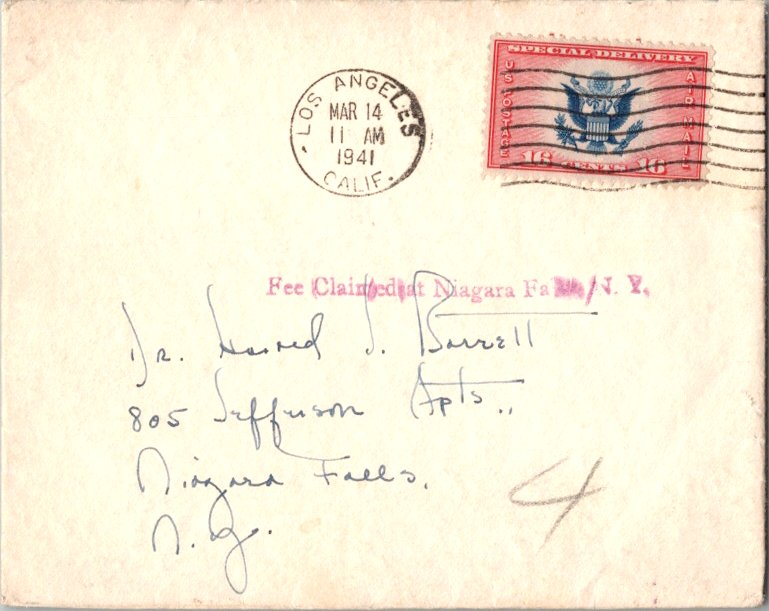 LOS ANGELES
MAR 14
11 AM
1941
CALIF.
SPECIAL DELIVERY
US POSTAGE
AIR MAIL
16 CENTS 16
Fee Claimed at Niagara Falls, N. Y.
Dr. J. Barrell
805 Jefferson Apts.,
Niagara Falls,
N.Y.
4